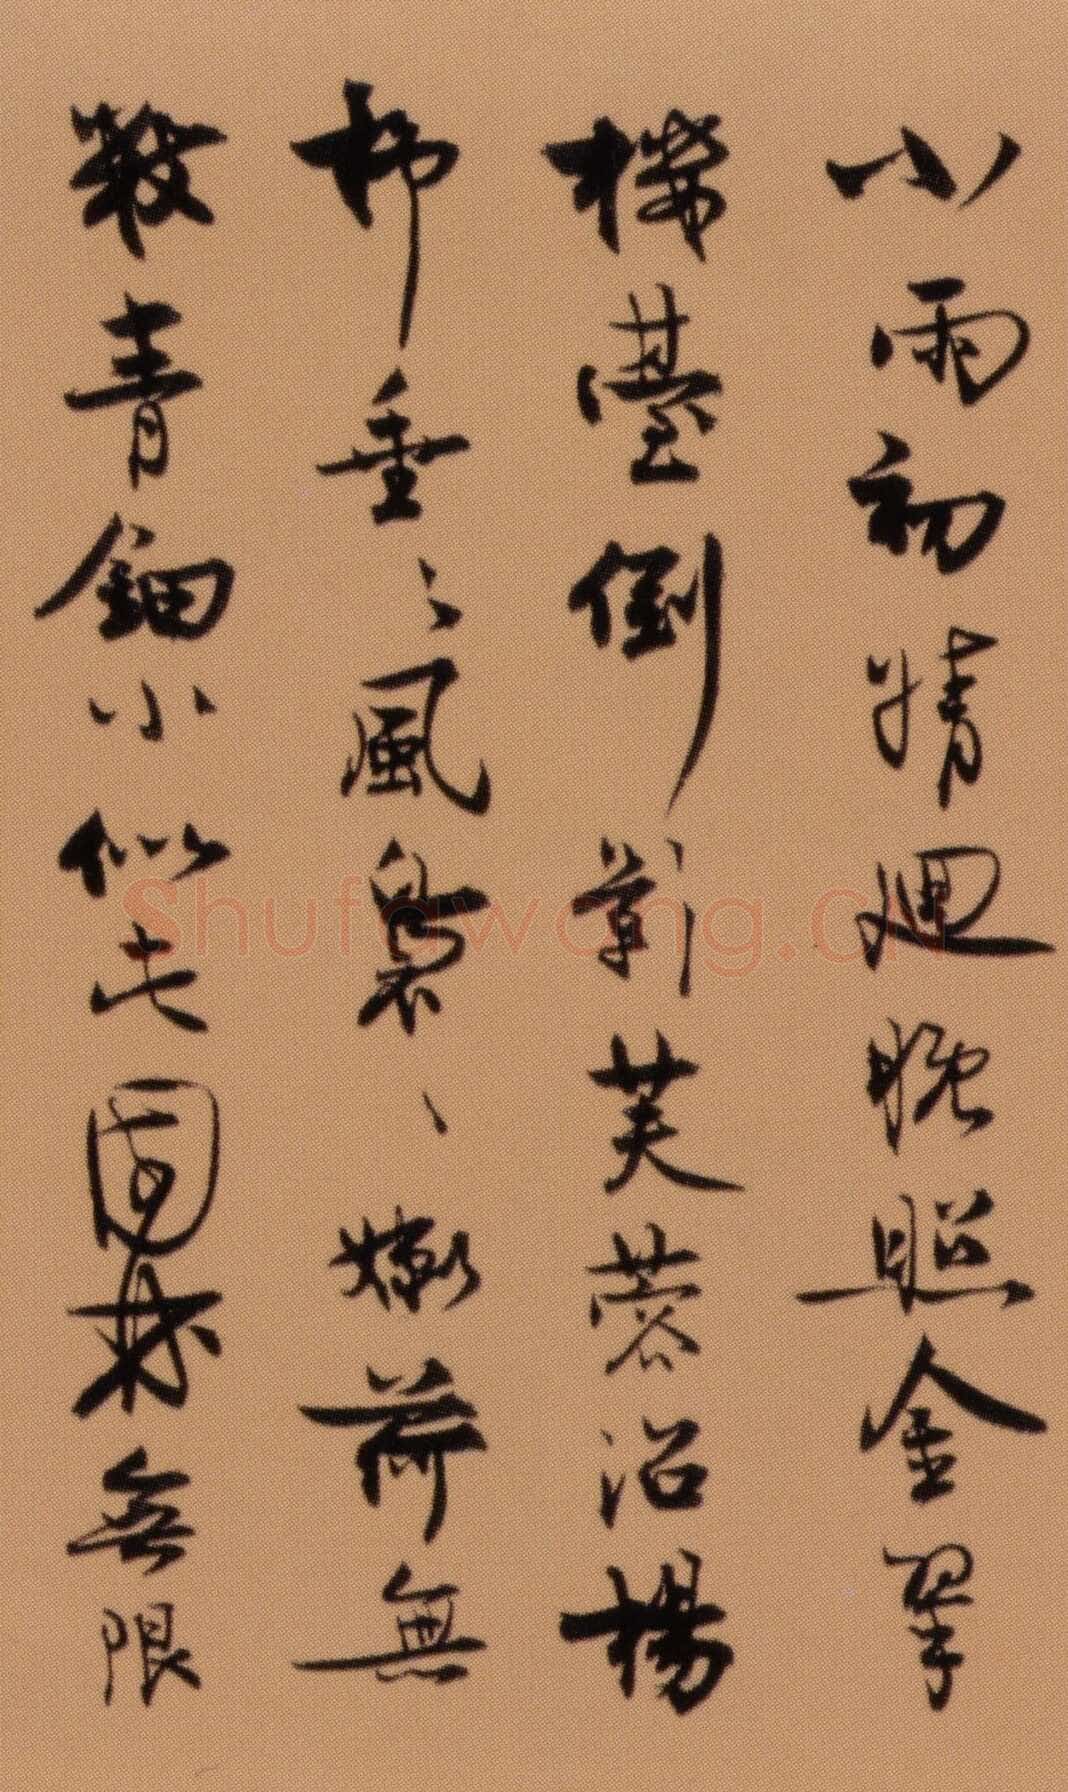 小雨初晴迴晚照金翠
樓臺倒影芙蓉沼楊
柳垂〻風裊〻嫩荷無
數青鈿小似此園林無限
Shufawang.CN